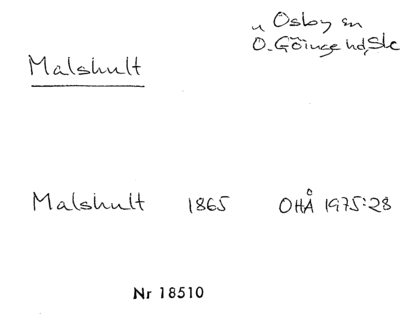 u Osby sn
Ö. Göinge hd, Sk
Malshult
Malshult 1865 OHÅ 1975:28
Nr 18510